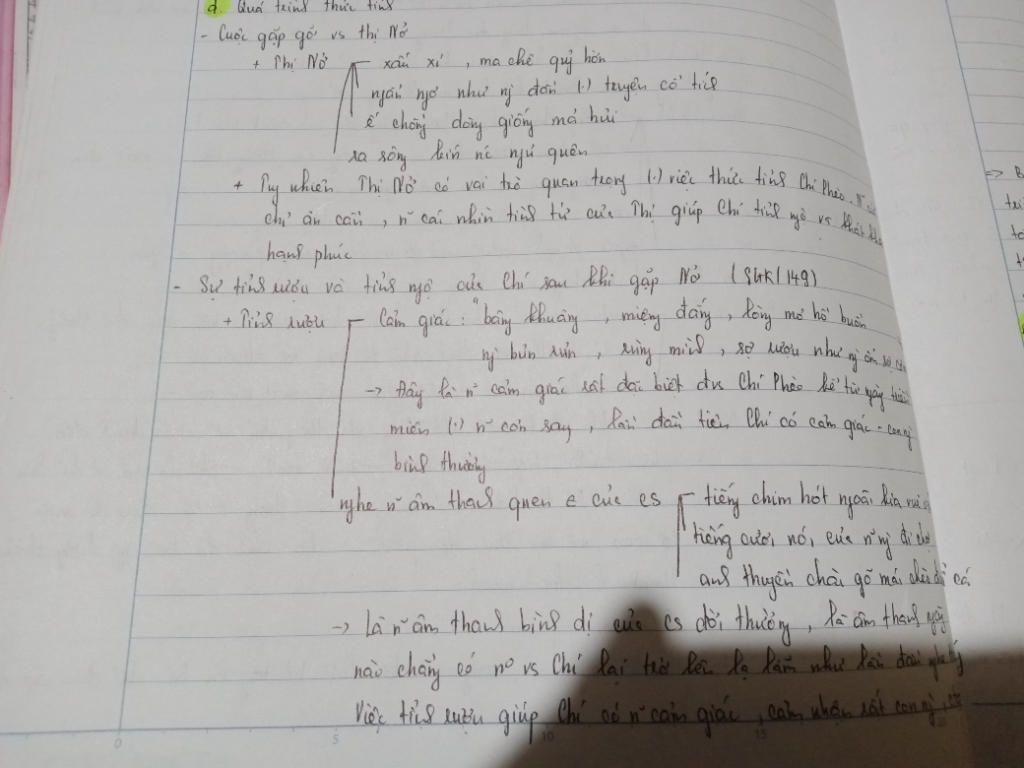 d. Quá trình thức tỉnh
- Cuộc gặp gỡ vs thị Nở
+ Thị Nở xấu xí, ma chê quỷ hờn
ngẩn ngơ như ng đần (.) truyện cổ tích
ế chồng dòng giống mả hủi
ra sông kín nc ngủ quên
+ Tuy nhiên Thị Nở có vai trò quan trọng (.) việc thức tỉnh Chí Phèo.
chỉ ân cần, n~ cái nhìn tình tứ của Thị giúp Chí tỉnh ngộ vs khát
hạnh phúc
- Sự tỉnh rượu và tỉnh ngộ của Chí sau khi gặp Nở (SGK/149)
+ Tỉnh rượu Cảm giác: "bâng khuâng, miệng đắng, lòng mơ hồ buồn
ng bủn rủn, rùng mình, sợ rượu như ng ốm sợ
-> Đây là n~ cảm giác rất đặc biệt đvs Chí Phèo kể từ ngày triền
miên (.) n~ cơn say, lần đầu tiên Chí có cảm giác - con ng
bình thường
nghe n~ âm thanh quen e của cs tiếng chim hót ngoài kia vui
tiếng cười nói của n~ ng đi chợ
anh thuyền chài gõ mái chèo đuổi cá
-> Là n~ âm thanh bình dị của cs đời thường, là âm thanh ngày
nào chẳng có nº vs Chí lại trở lên lạ lẫm như lần đầu nghe thấy
Việc tỉnh rượu giúp Chí có n~ cảm giác, cảm nhận rất con ng,